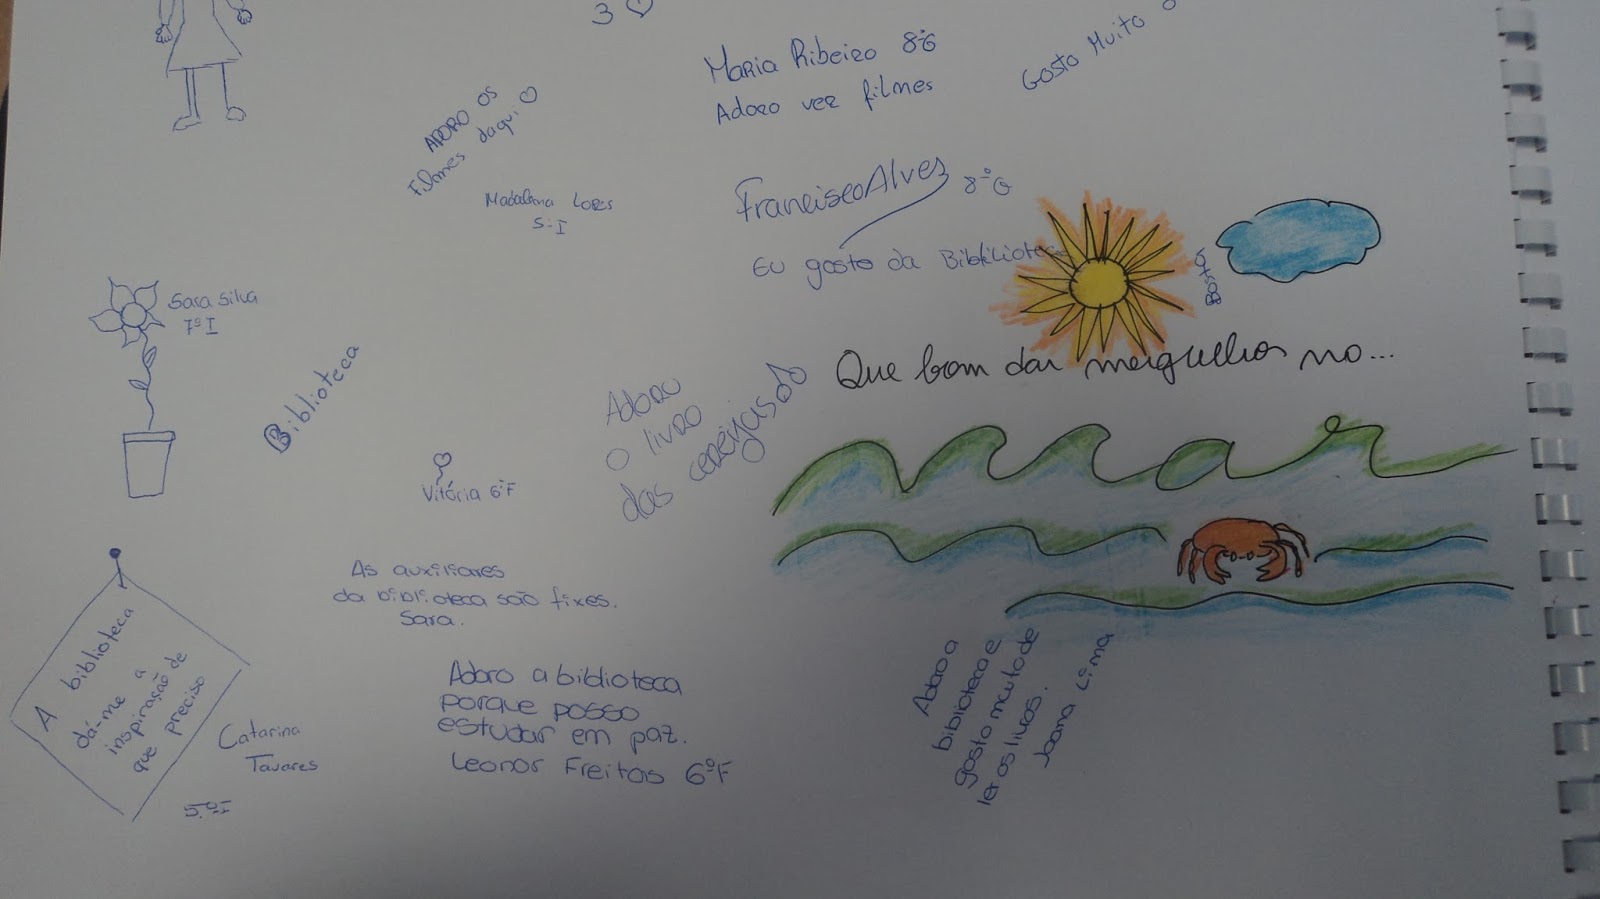 3
Maria Ribeiro 8ºG
Adoro ver filmes
Gosto Muito
ADORO OS
Filmes daqui
Madalena Lopes
5º I
Francisco Alves 8ºG
Eu gosto da Bibliioteca
Sara Silva
7º I
Biblioteca
Vitória 6ºF
Adoro
o livro
das cerejas
Que bom dar mergulhos no...
mar
As auxiliares
da biblioteca são fixes.
Sara.
A biblioteca
dá-me a
inspiração de
que preciso
Catarina
Tavares
5.º I
Adoro a biblioteca
porque posso
estudar em paz.
Leonor Freitas 6ºF
Adoro a
biblioteca e
gosto muito de
ler os livros.
Joana Lima